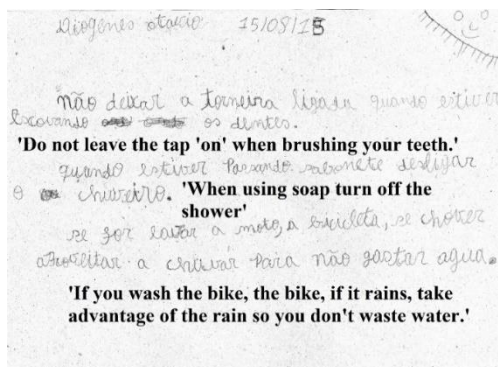 Diogenes otacio 15/08/15
não deixar a torneira ligada quando estiver
Escovando os dentes.
'Do not leave the tap 'on' when brushing your teeth.'
quando estiver Passando sabonete desligar
o chuveiro. 'When using soap turn off the
shower'
se for lavar a moto, a bicicleta, se chover
aproveitar a chuva Para não gastar agua.
'If you wash the bike, the bike, if it rains, take
advantage of the rain so you don't waste water.'